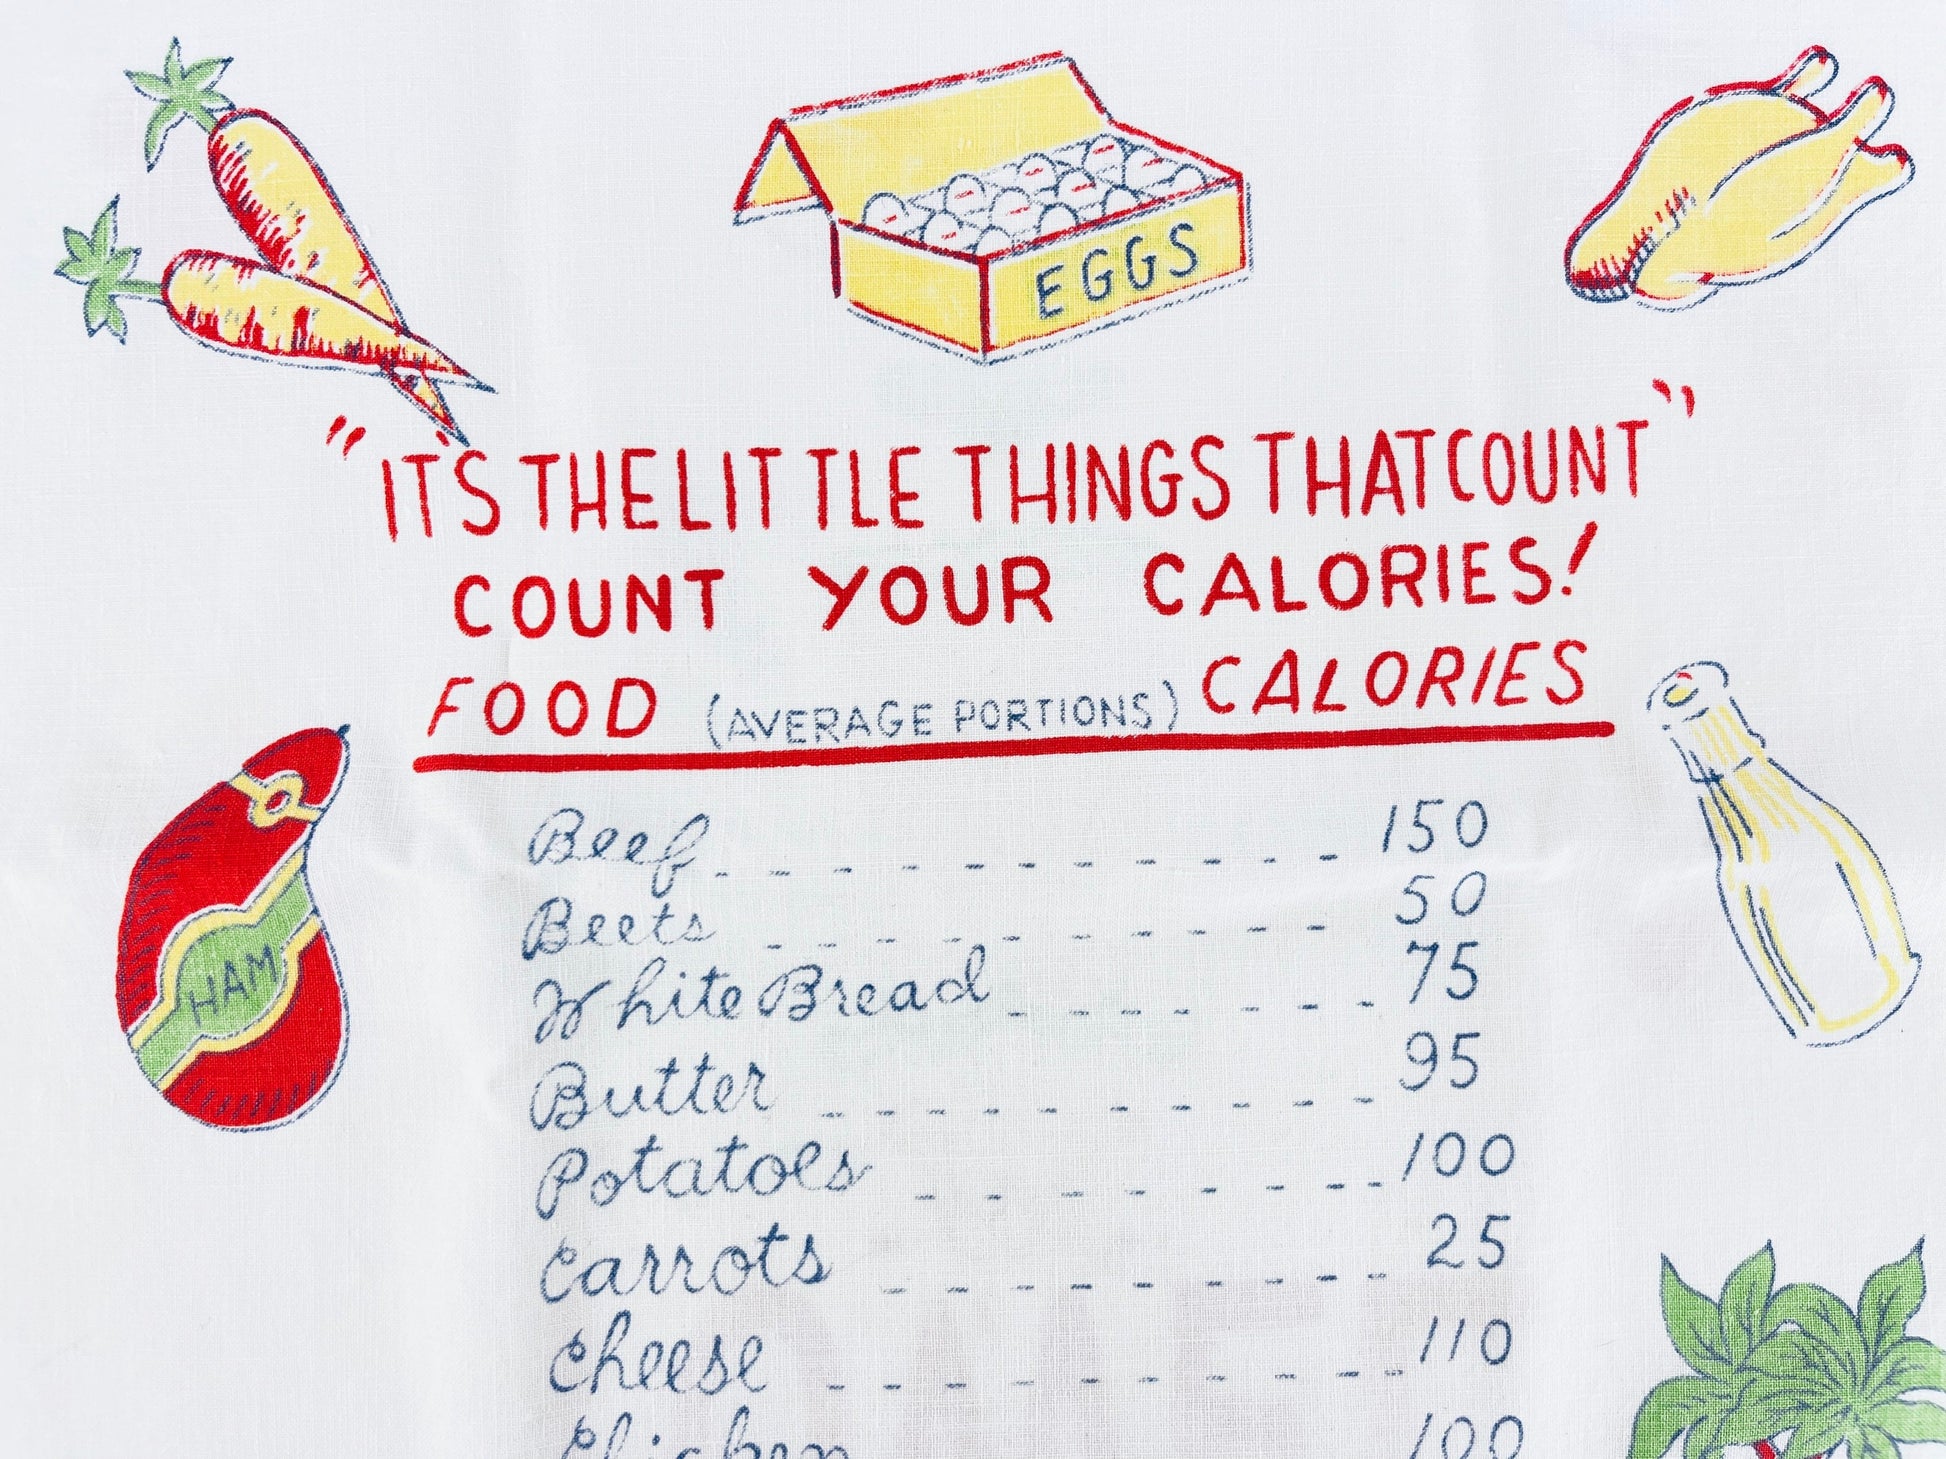 EGGS
"IT'S THE LITTLE THINGS THAT COUNT"
COUNT YOUR CALORIES!
FOOD (AVERAGE PORTIONS) CALORIES
HAM
Beef 150
Beets 50
White Bread 75
Butter 95
Potatoes 100
Carrots 25
Cheese 110
Chicken 100